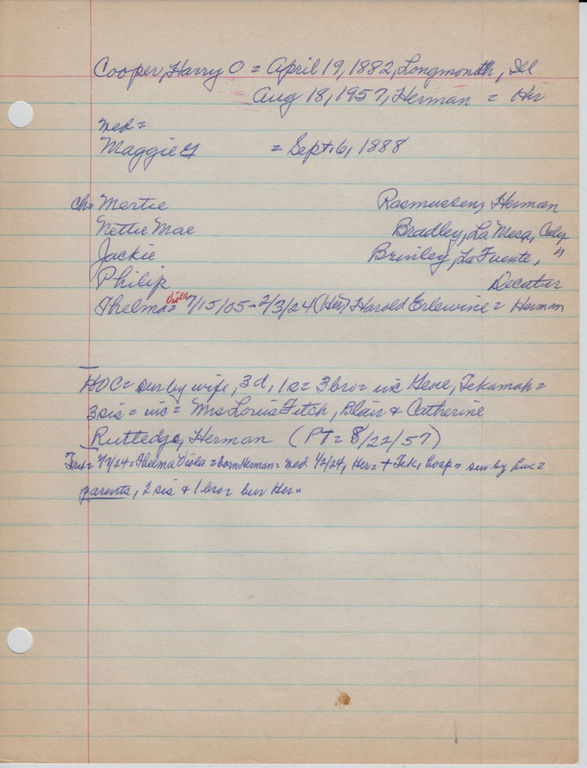 Cooper, Harry O = April 19, 1882, Longmonth, Ill
Aug 18, 1957, Herman = Her
med =
Maggie G = Sept. 6, 1888
ch= Mertie Rasmussen, Herman
Nettie Mae Bradley, La Mesa, Caly
Jackie Brinley, La Fuente, "
Philip Decatur
Thelma Viola= 7/15/05-2/3/24 (Her) Harold Erlewine = Herman
HOC = sur by wife, 3 d, 1 s = 3 bro = inc Gene, Tekamah =
3 sis = inc = Mrs Louis Fitch, Blair & Catherine
Rutledge, Herman (PT = 8/22/57)
= Thelma Viola = born Herman = med 1/2/24, Her = + Tek, hosp = sur by hus =
parents, 2 sis & 1 bro = bur Her..